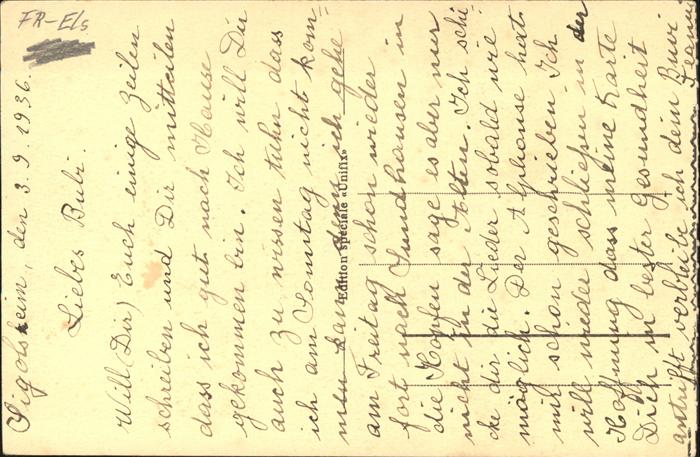 FR-Els
Sigolsheim, den 3.9.1936.
Liebes Bubi.
Will (Dir) Euch einige Zeilen
schreiben und Dir mitteilen
dass ich gut nach Hause
gekommen bin. Ich will Dir
auch zu wissen tuhn dass
ich am Sonntag nicht kom=
men kann denn ich gehe
am Freitag schon wieder
fort nach Sundhausen in
die Hopfen sage es aber nur
nicht in der Alten. Ich schi=
cke dir die Lieder sobald wie
möglich. Der Alphonse hats
mir schon geschrieben Ich
will wieder schliessen in der
Hoffnung dass meine Karte
Dich in bester Gesundheit
antrifft verbleibe ich dein
Edition spéciale «Unifix»